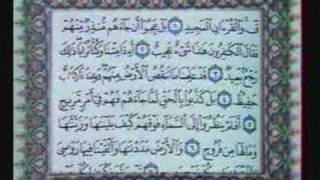 قٓ وَٱلْقُرْءَانِ ٱلْمَجِيدِ ١ بَلْ عَجِبُوٓا۟ أَن جَآءَهُم مُّنذِرٌ مِّنْهُمْ
فَقَالَ ٱلْكَٰفِرُونَ هَٰذَا شَىْءٌ عَجِيبٌ ٢ أَءِذَا مِتْنَا وَكُنَّا تُرَابًا ذَٰلِكَ
رَجْعٌۢ بَعِيدٌ ٣ قَدْ عَلِمْنَا مَا تَنقُصُ ٱلْأَرْضُ مِنْهُمْ وَعِندَنَا كِتَٰبٌ
حَفِيظٌۢ ٤ بَلْ كَذَّبُوا۟ بِٱلْحَقِّ لَمَّا جَآءَهُمْ فَهُمْ فِىٓ أَمْرٍ مَّرِيجٍ
٥ أَفَلَمْ يَنظُرُوٓا۟ إِلَى ٱلسَّمَآءِ فَوْقَهُمْ كَيْفَ بَنَيْنَٰهَا وَزَيَّنَّٰهَا
وَمَا لَهَا مِن فُرُوجٍ ٦ وَٱلْأَرْضَ مَدَدْنَٰهَا وَأَلْقَيْنَا فِيهَا رَوَٰسِىَ